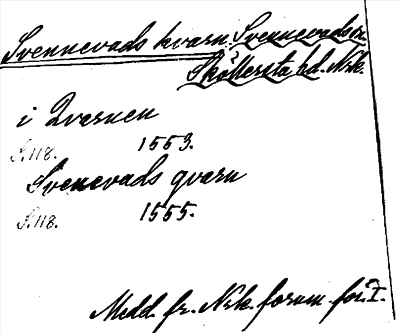 Svennevads kvarn. Svennevads sn.
Sköllersta hd. Nrk.
i Qvarnen
S. 118. 1553.
Svenevads qvarn
S. 118. 1555.
Medd. fr. Nrk. fornm. för. I.